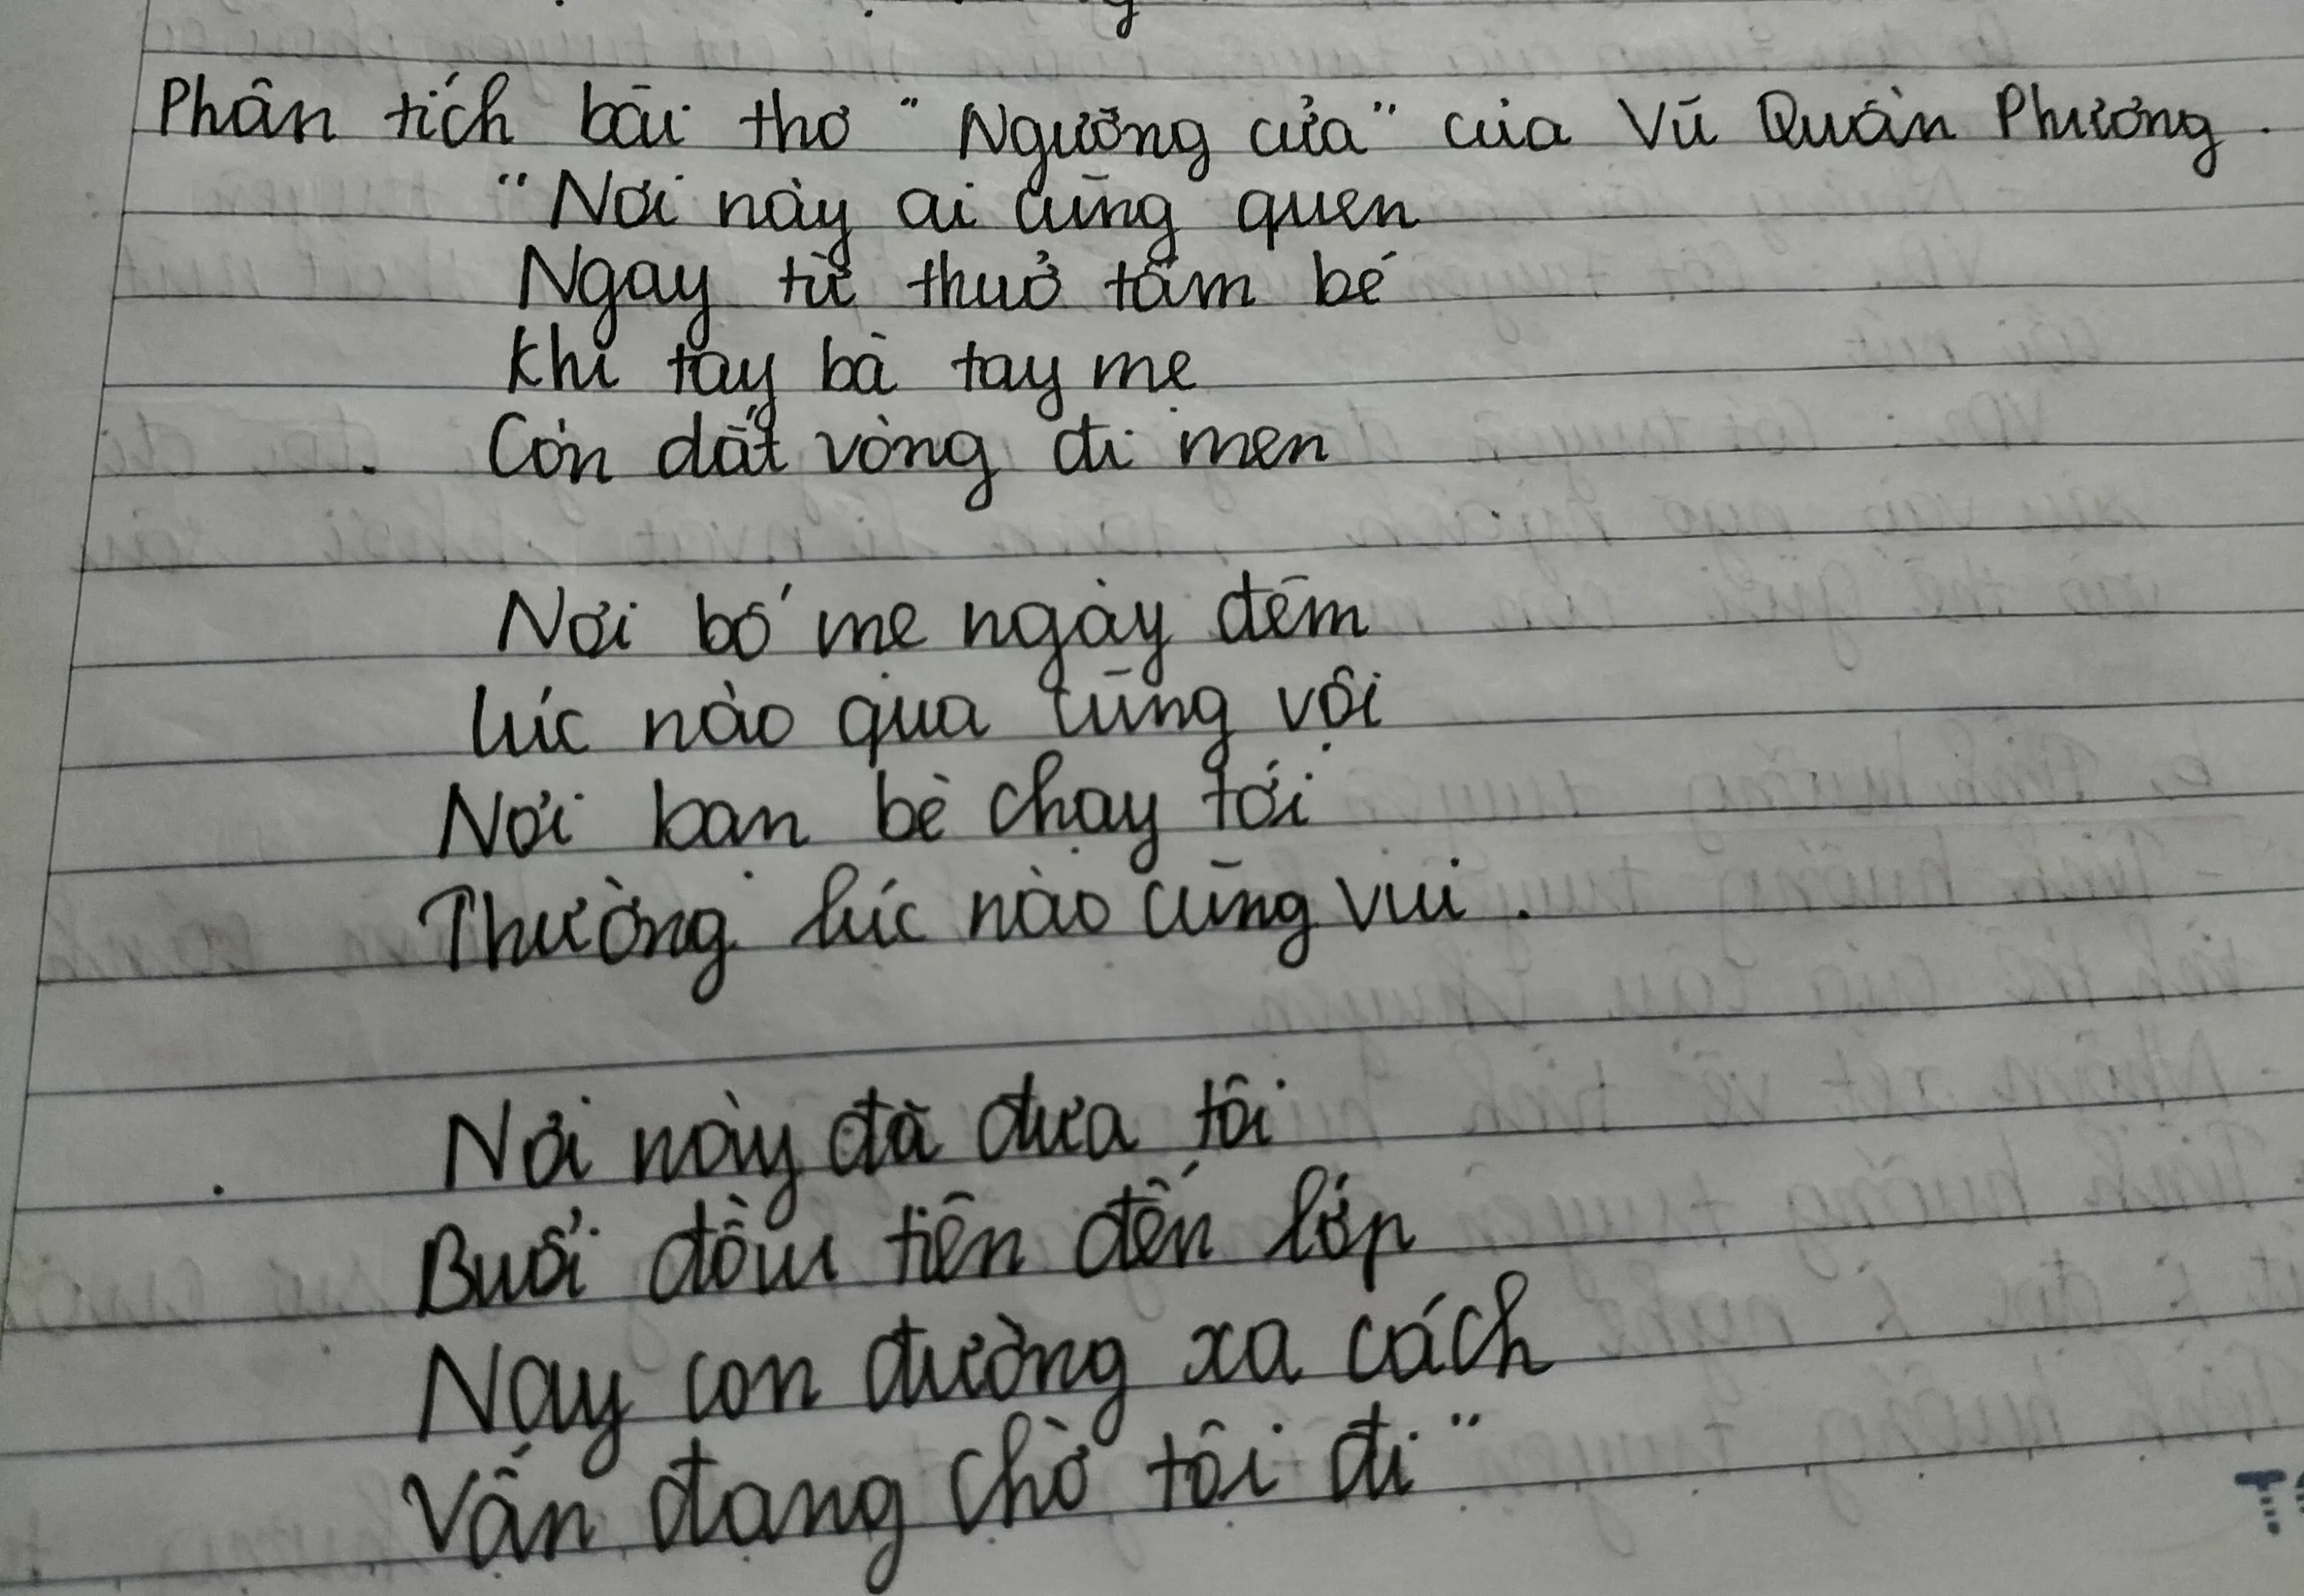 Phân tích bài thơ "Ngưỡng cửa" của Vũ Quần Phương.
"Nơi này ai cũng quen
Ngay từ thuở tấm bé
Khi tay bà tay mẹ
Còn dắt vòng đi men
Nơi bố mẹ ngày đêm
Lúc nào qua cũng vội
Nơi bạn bè chạy tới
Thường lúc nào cũng vui.
Nơi này đã đưa tôi
Buổi đầu tiên đến lớp
Nay con đường xa cách
Vẫn đang chờ tôi đi"